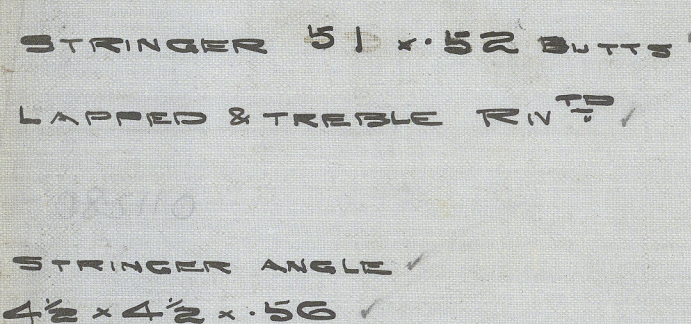 STRINGER 51 x .52 BUTTS
LAPPED & TREBLE RIVTD ✓
STRINGER ANGLE ✓
4½ x 4½ x .56 ✓